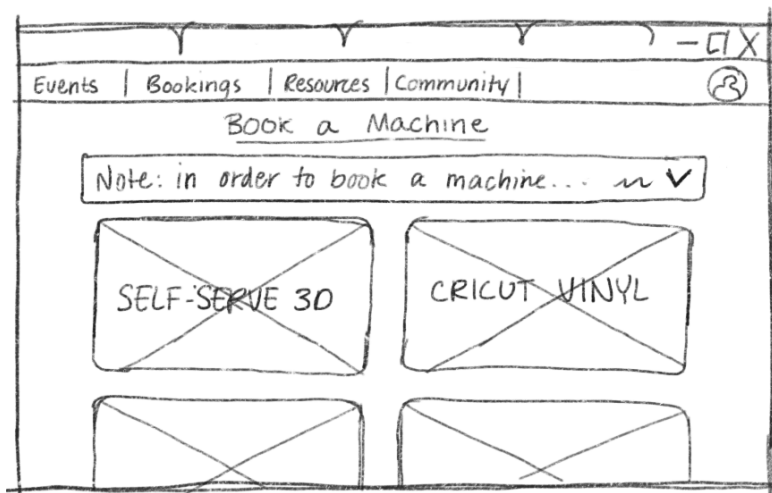 Events | Bookings | Resources | Community |
Book a Machine
Note: in order to book a machine...
SELF-SERVE 3D
CRICUT VINYL